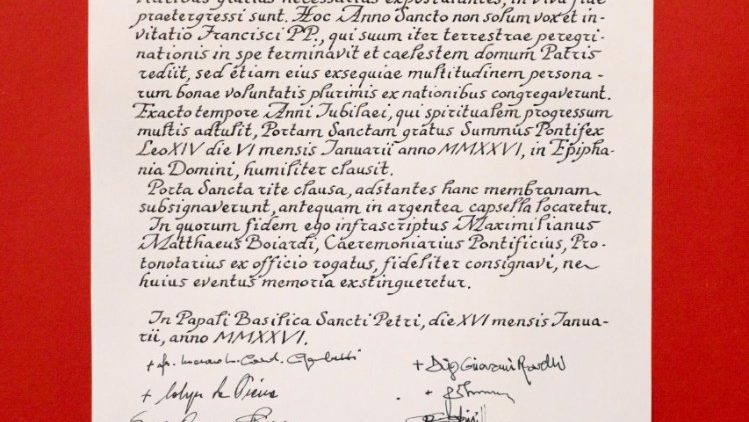 gratius necessarius expostulantes, in viva fide
praetergressi sunt. Hoc Anno Sancto non solum vox et in-
vitatio Francisci PP., qui suum iter terrestrae peregri-
nationis in spe terminavit et caelestem domum Patris
rediit, sed etiam eius exsequiae multitudinem persona-
rum bonae voluntatis plurimis ex nationibus congregaverunt.
Exacto tempore Anni Iubilaei, qui spiritualem progressum
multis adtulit, Portam Sanctam gratus Summus Pontifex
Leo XIV die VI mensis Ianuarii anno MMXXVI, in Epipha-
nia Domini, humiliter clausit.
Porta Sancta rite clausa, adstantes hanc membranam
subsignaverunt, antequam in argentea capsella locaretur.
In quorum fidem ego infrascriptus Maximilianus
Matthaeus Boiardi, Caeremoniarius Pontificius, Pro-
tonotarius ex officio rogatus, fideliter consignavi, ne
huius eventus memoria exstingueretur.
In Papali Basilica Sancti Petri, die XVI mensis Ianua-
rii, anno MMXXVI.